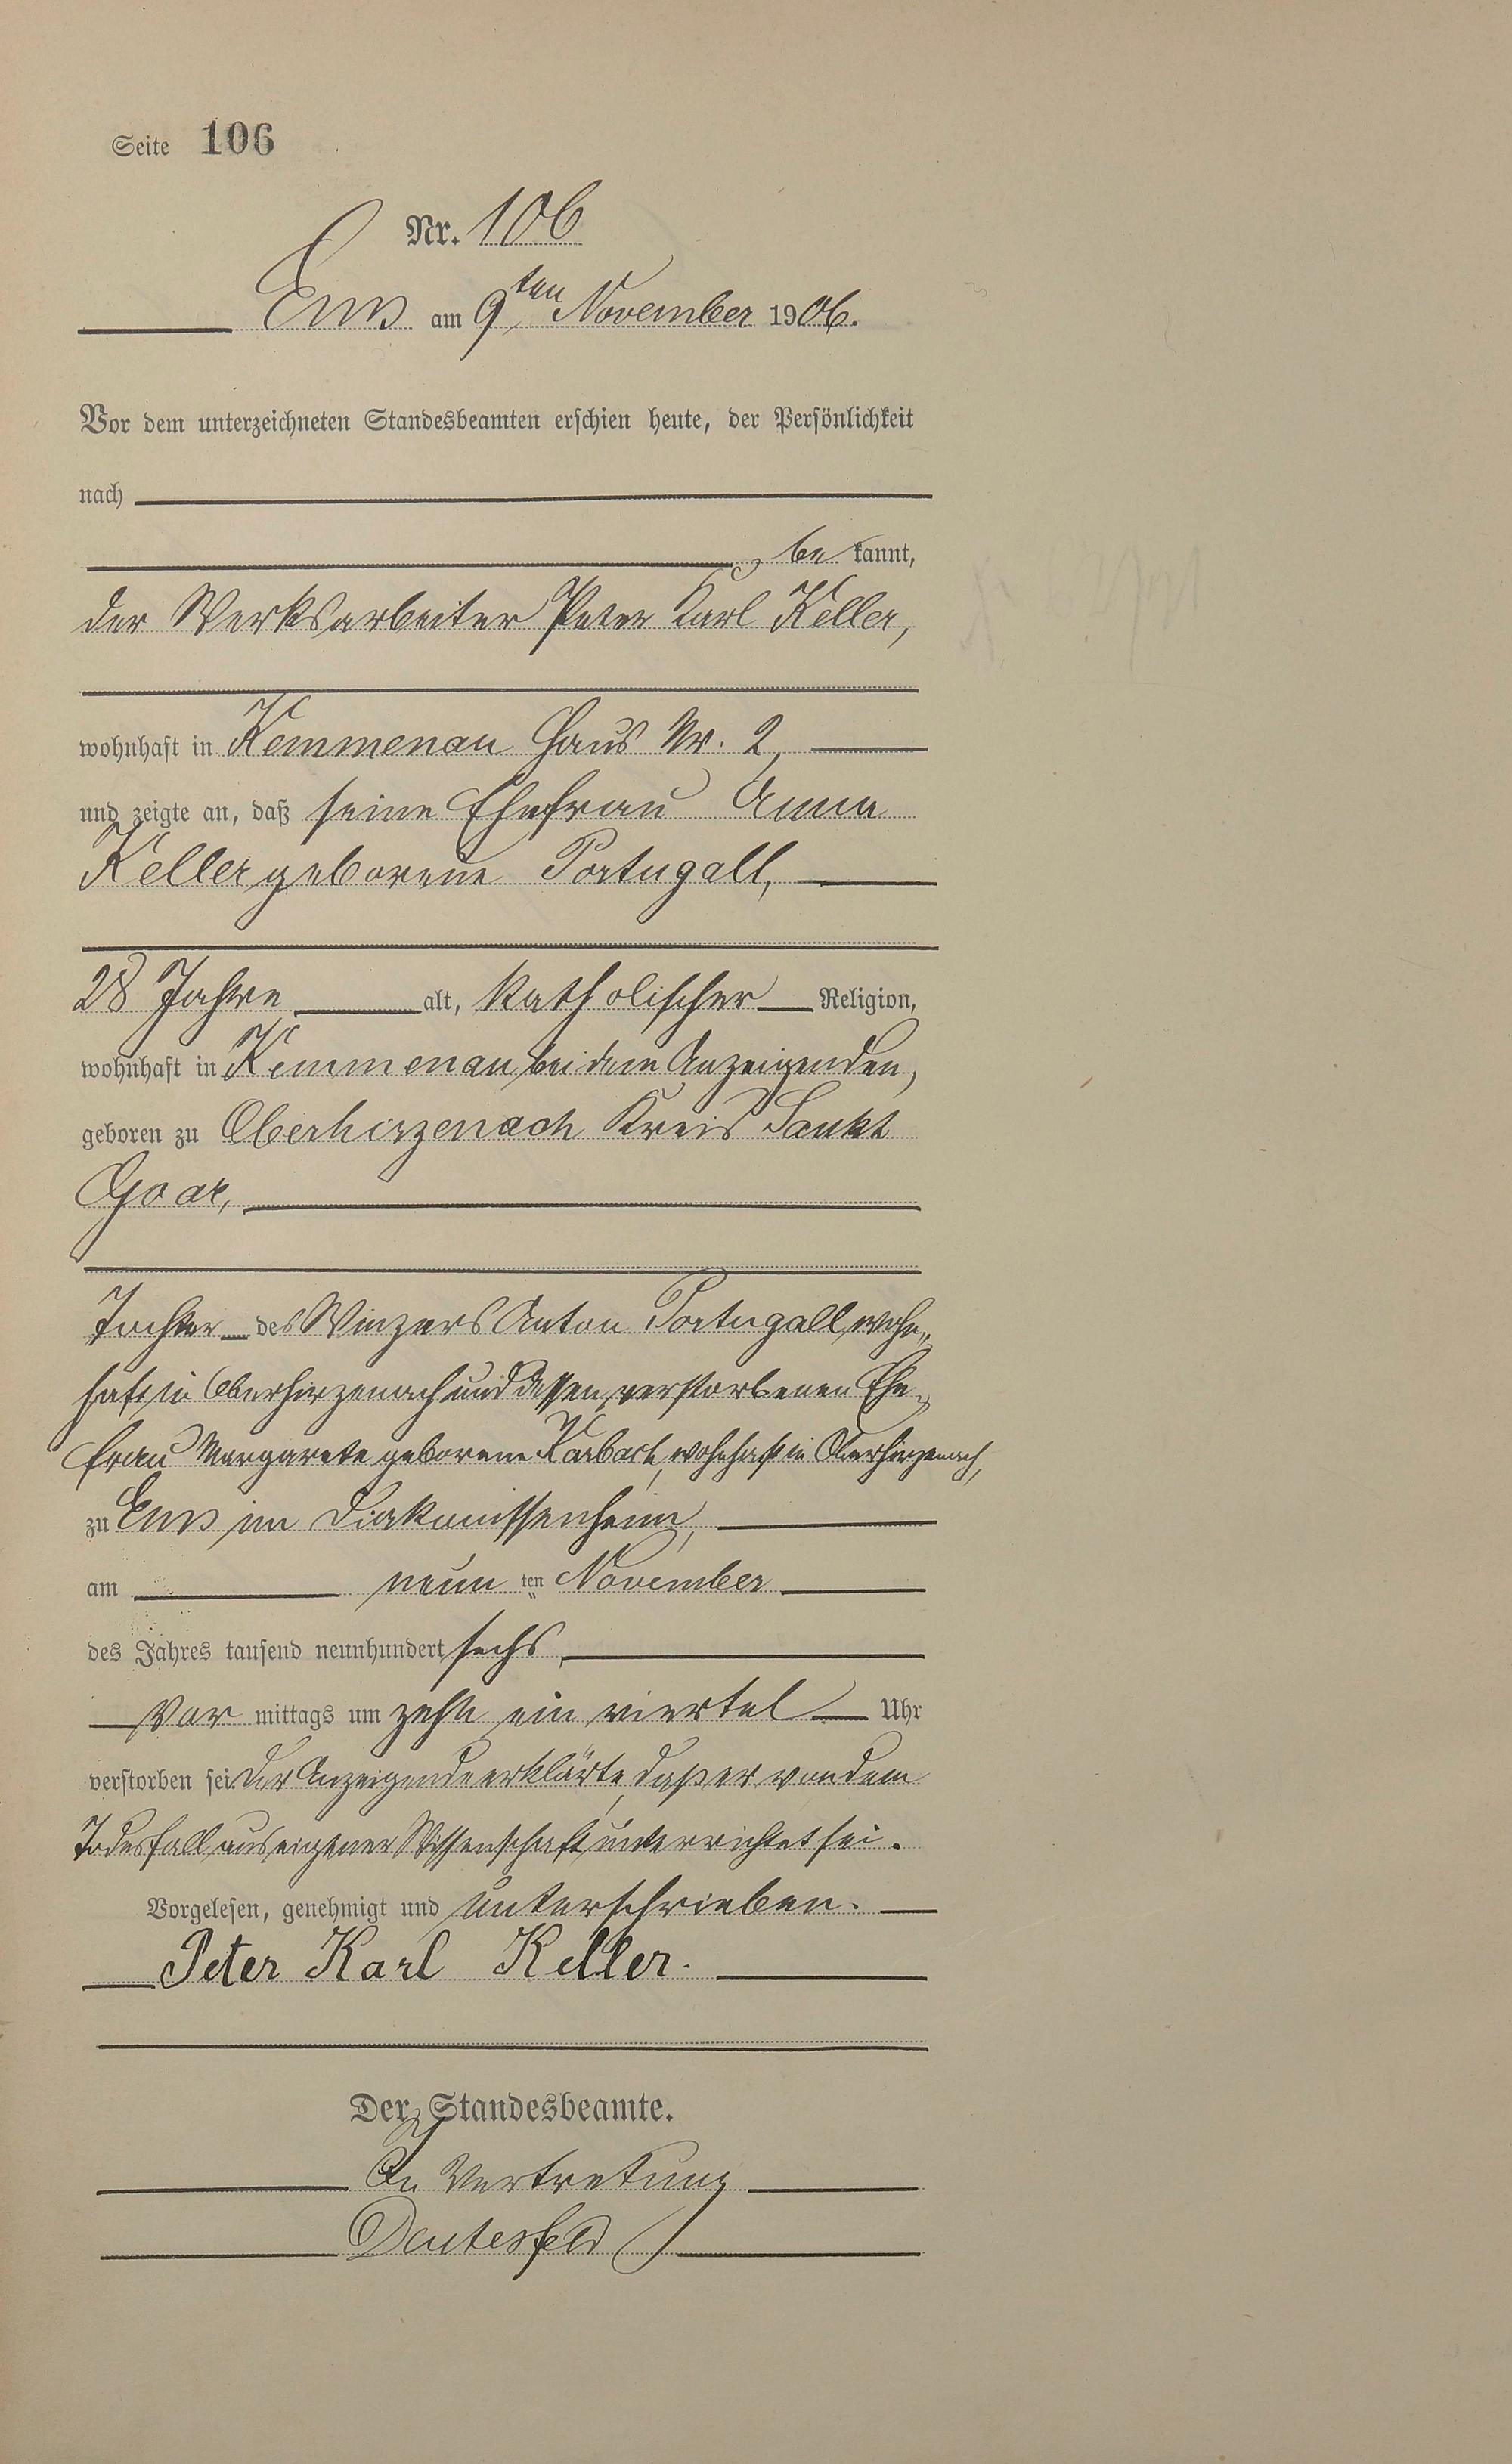 Seite 106
Nr. 106
Ems am 9ten November 1906.
Vor dem unterzeichneten Standesbeamten erschien heute, der Persönlichkeit
nach
be kannt,
der Werksarbeiter Peter Karl Keller,
wohnhaft in Kemmenau Haus Nr. 2,
und zeigte an, daß seine Ehefrau Anna
Keller geborene Portugall,
28 Jahre alt, katholischer Religion,
wohnhaft in Kemmenau bei dem Anzeigenden,
geboren zu Oberhirzenach Kreis Sankt
Goar,
Tochter des Winzers Anton Portugall, wohn„
haft in Oberhirzenach und dessen verstorbenen Ehe„
frau Margarete geborene Karbach, wohnhaft in Oberhirzenach,
zu Ems im Diakonissenheim,
am neun ten November
des Jahres tausend neunhundert sechs,
Vor mittags um zehn ein viertel Uhr
verstorben sei. Der Anzeigende erklärte, daß er von dem
Todesfall aus eigener Wissenschaft unterrichtet sei.
Vorgelesen, genehmigt und unterschrieben.
Peter Karl Keller.
Der Standesbeamte.
In Vertretung